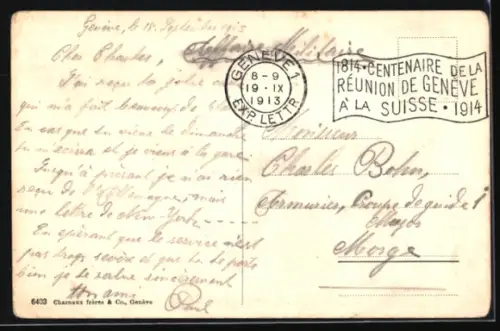 Genève, le 18 Septembre 1913
Affaire Militaire
Cher Charles,
J'ai reçu ta jolie
qui m'a fait beaucoup de
En cas que tu viens le dimanche
tu m'écriras et je viens à la gare
Jusqu'à présent je n'ai rien
reçu de l'Allemagne, mais
une lettre de New-York
En espérant que le service n'est
pas trop sévère et que tu te porte
bien je te salue sincèrement
ton ami
Paul
GENÈVE 1
8-9
19·IX
1913
EXP. LETTR.
1814·CENTENAIRE DE LA
RÉUNION DE GENÈVE
À LA SUISSE·1914
Monsieur
Charles Bohn,
Armurier, Groupe de guide 1
Morge
6403 Charnaux frères & Co., Genève